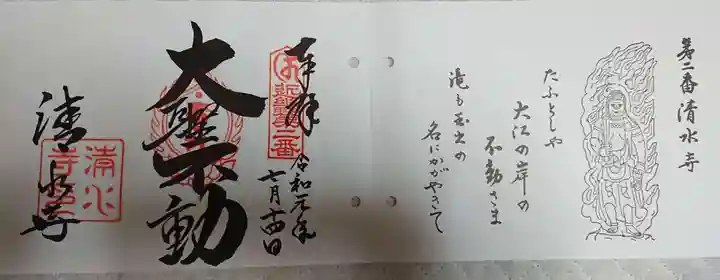 第二番清水寺
たふとしや
大江の岸の
不動さま
滝も玉出の
名にかがやきて
奉拝
令和元年
七月十四日
近畿第二番
大聖不動
清水寺
清水
寺印